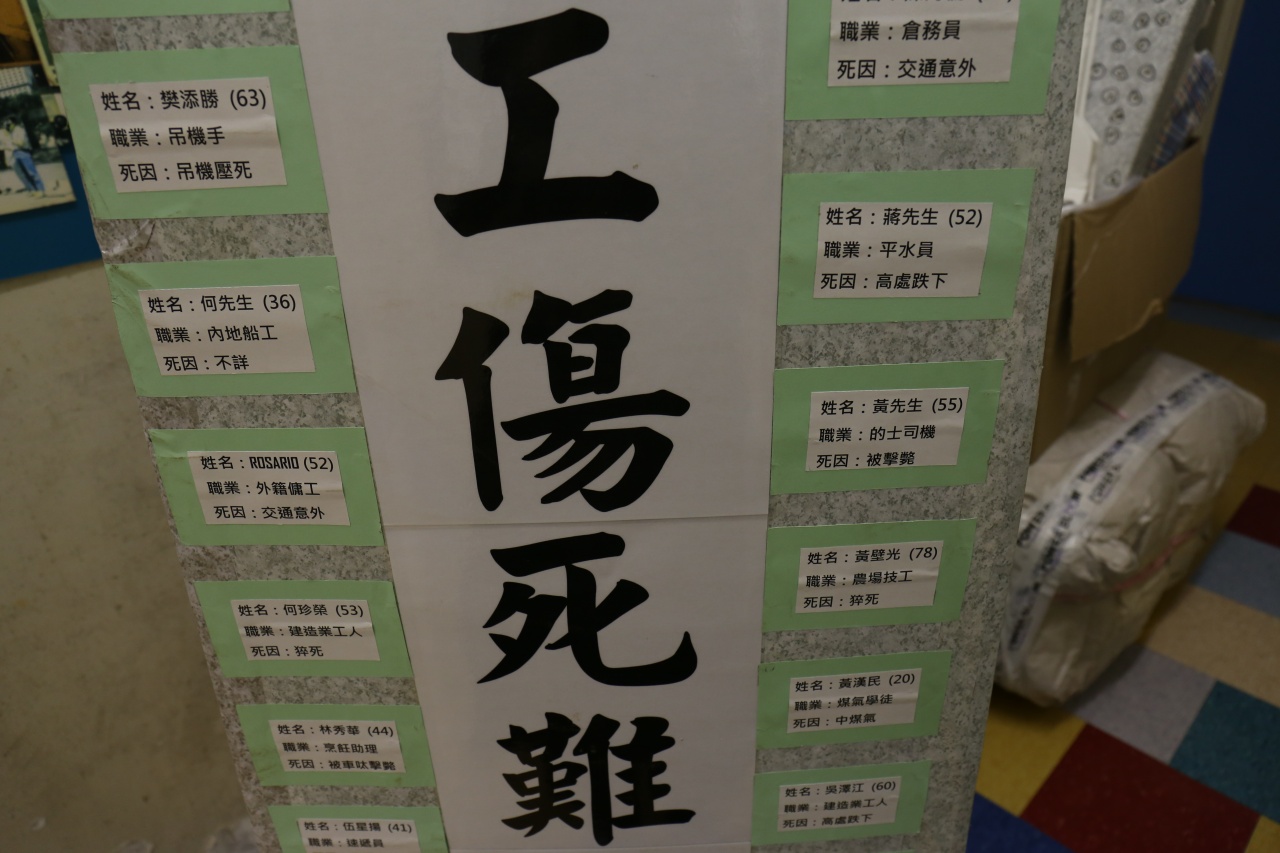 姓名：樊添勝 (63)
職業：吊機手
死因：吊機壓死
姓名：何先生 (36)
職業：內地船工
死因：不詳
姓名：ROSARIO (52)
職業：外籍傭工
死因：交通意外
姓名：何珍榮 (53)
職業：建造業工人
死因：猝死
姓名：林秀華 (44)
職業：烹飪助理
死因：被車呔擊斃
姓名：伍星揚 (41)
職業：速遞員
工傷死難
職業：倉務員
死因：交通意外
姓名：蔣先生 (52)
職業：平水員
死因：高處跌下
姓名：黃先生 (55)
職業：的士司機
死因：被擊斃
姓名：黃壁光 (78)
職業：農場技工
死因：猝死
姓名：黃漢民 (20)
職業：煤氣學徒
死因：中煤氣
姓名：吳澤江 (60)
職業：建造業工人
死因：高處跌下